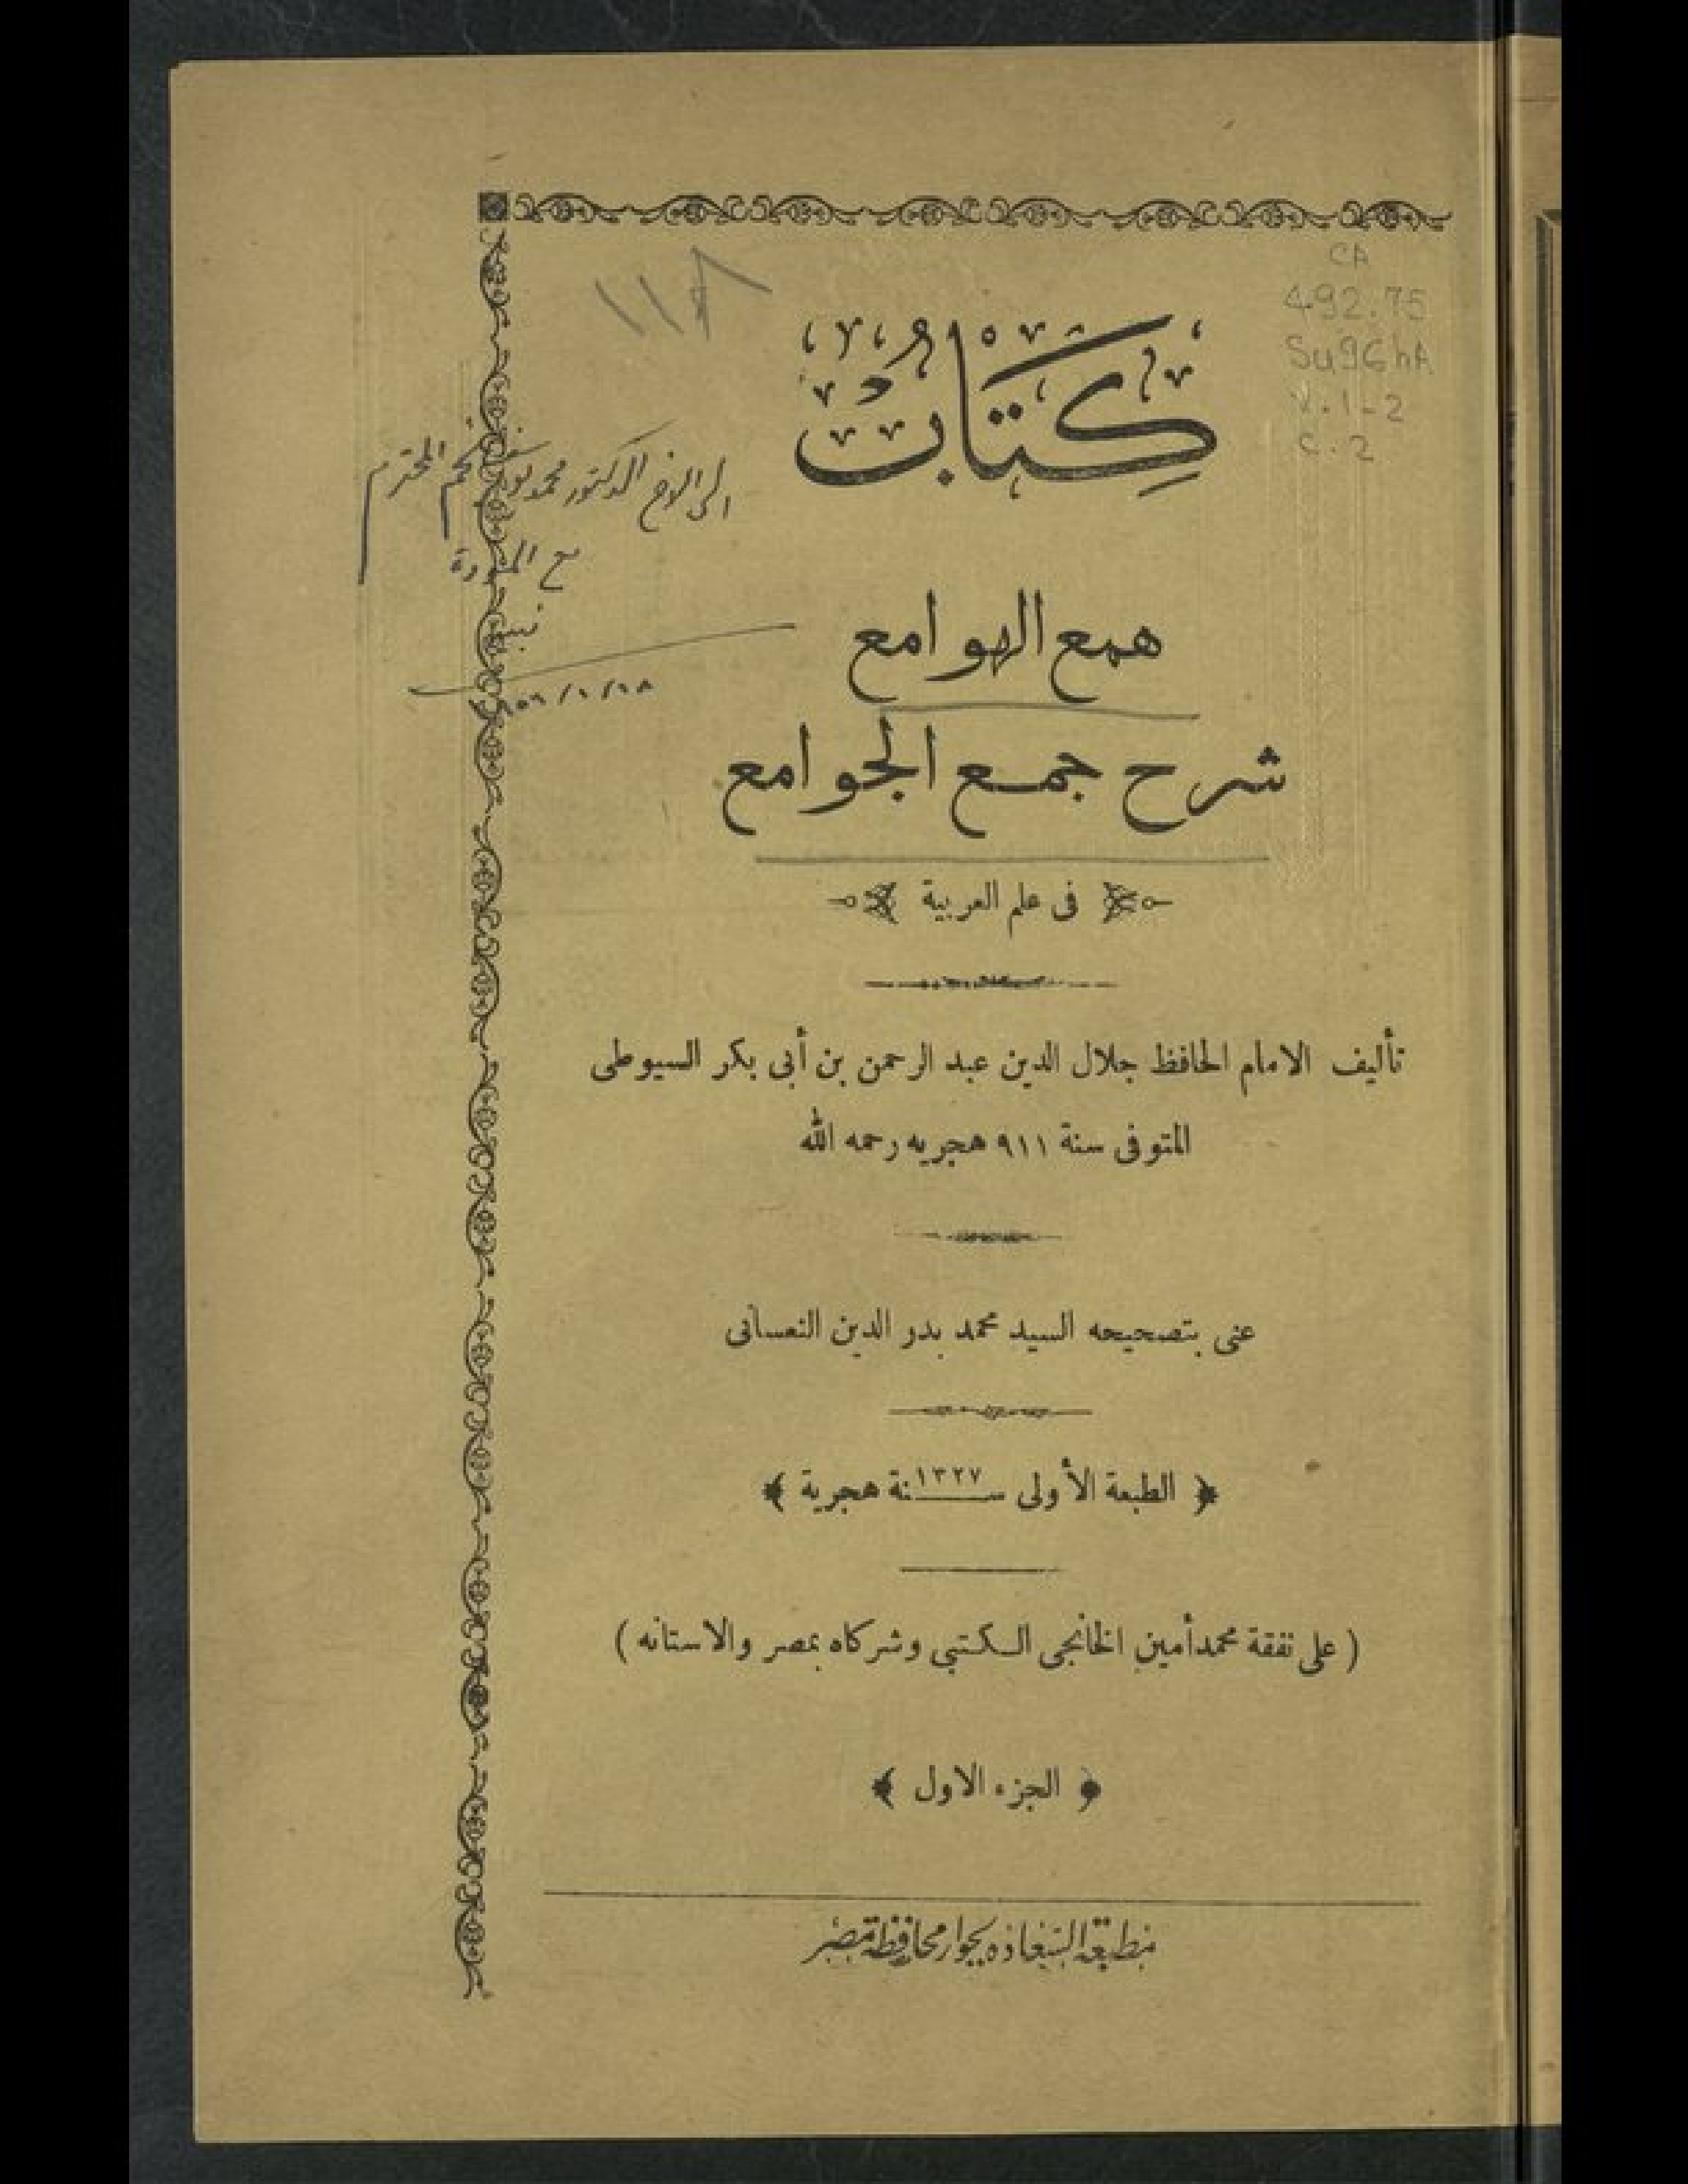 CA
492.75
Su96hA
V.1-2
C.2
كِتَابُ
الى الاخ الدكتور محمد يوسف نجم المحترم
مع المودة
١٩٥٦/١/١٨
همع الهوامع
شرح جمع الجوامع
فى علم العربية
تأليف الامام الحافظ جلال الدين عبد الرحمن بن أبى بكر السيوطى
المتوفى سنة ٩١١ هجريه رحمه الله
عنى بتصحيحه السيد محمد بدر الدين النعسانى
﴿ الطبعة الأولى سنة ١٣٢٧ هجرية ﴾
( على نفقة محمد أمين الخانجى الكتبي وشركاه بمصر والاستانه )
﴿ الجزء الاول ﴾
مطبعة السعادة بجوار محافظة مصر